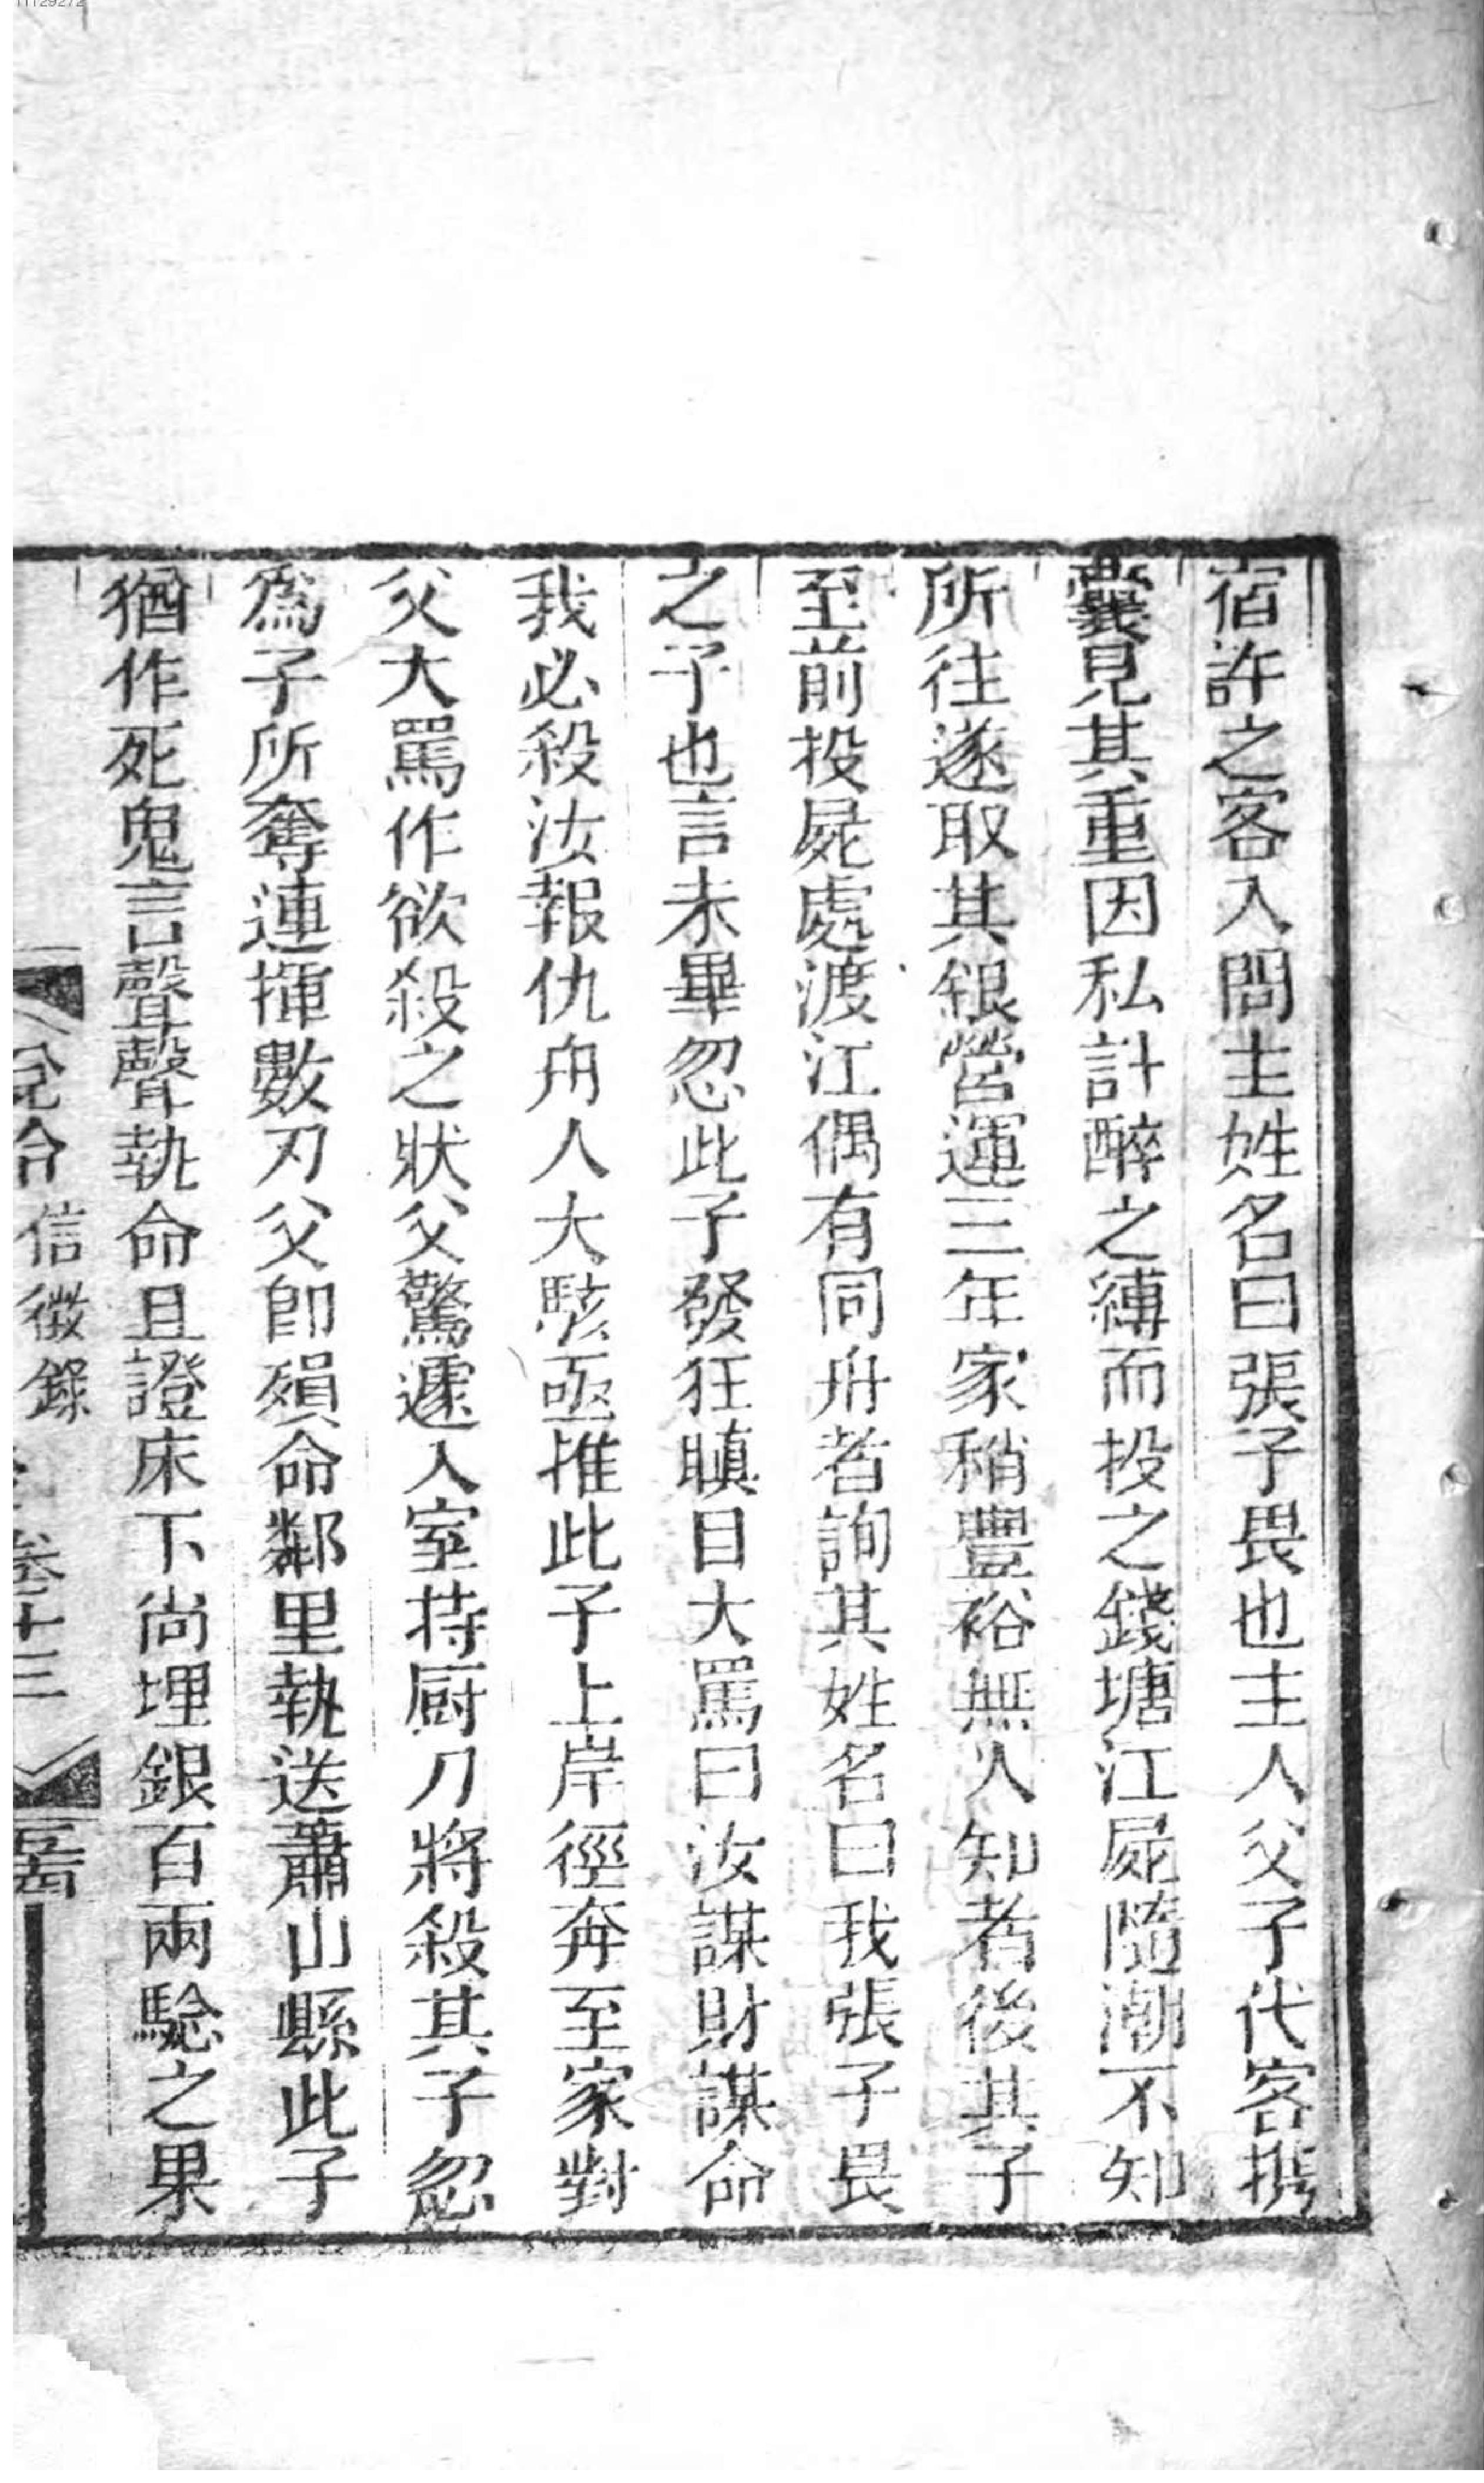 宿許之客入問主姓名曰張子畏也主人父子代客攜
囊見其重因私計醉之縛而投之錢塘江屍隨潮不知
所往遂取其銀營運三年家稍豐裕無人知者後其子
至前投屍處渡江偶有同舟者詢其姓名曰我張子畏
之子也言未畢忽此子發狂瞋目大罵曰汝謀財謀命
我必殺汝報仇舟人大駭亟推此子上岸徑奔至家對
父大罵作欲殺之狀父驚遽入室持厨刀將殺其子忽
爲子所奪連揮數刃父卽殞命鄰里執送蕭山縣此子
猶作死鬼言聲聲執命且證床下尚埋銀百兩驗之果
信徵錄 卷十三